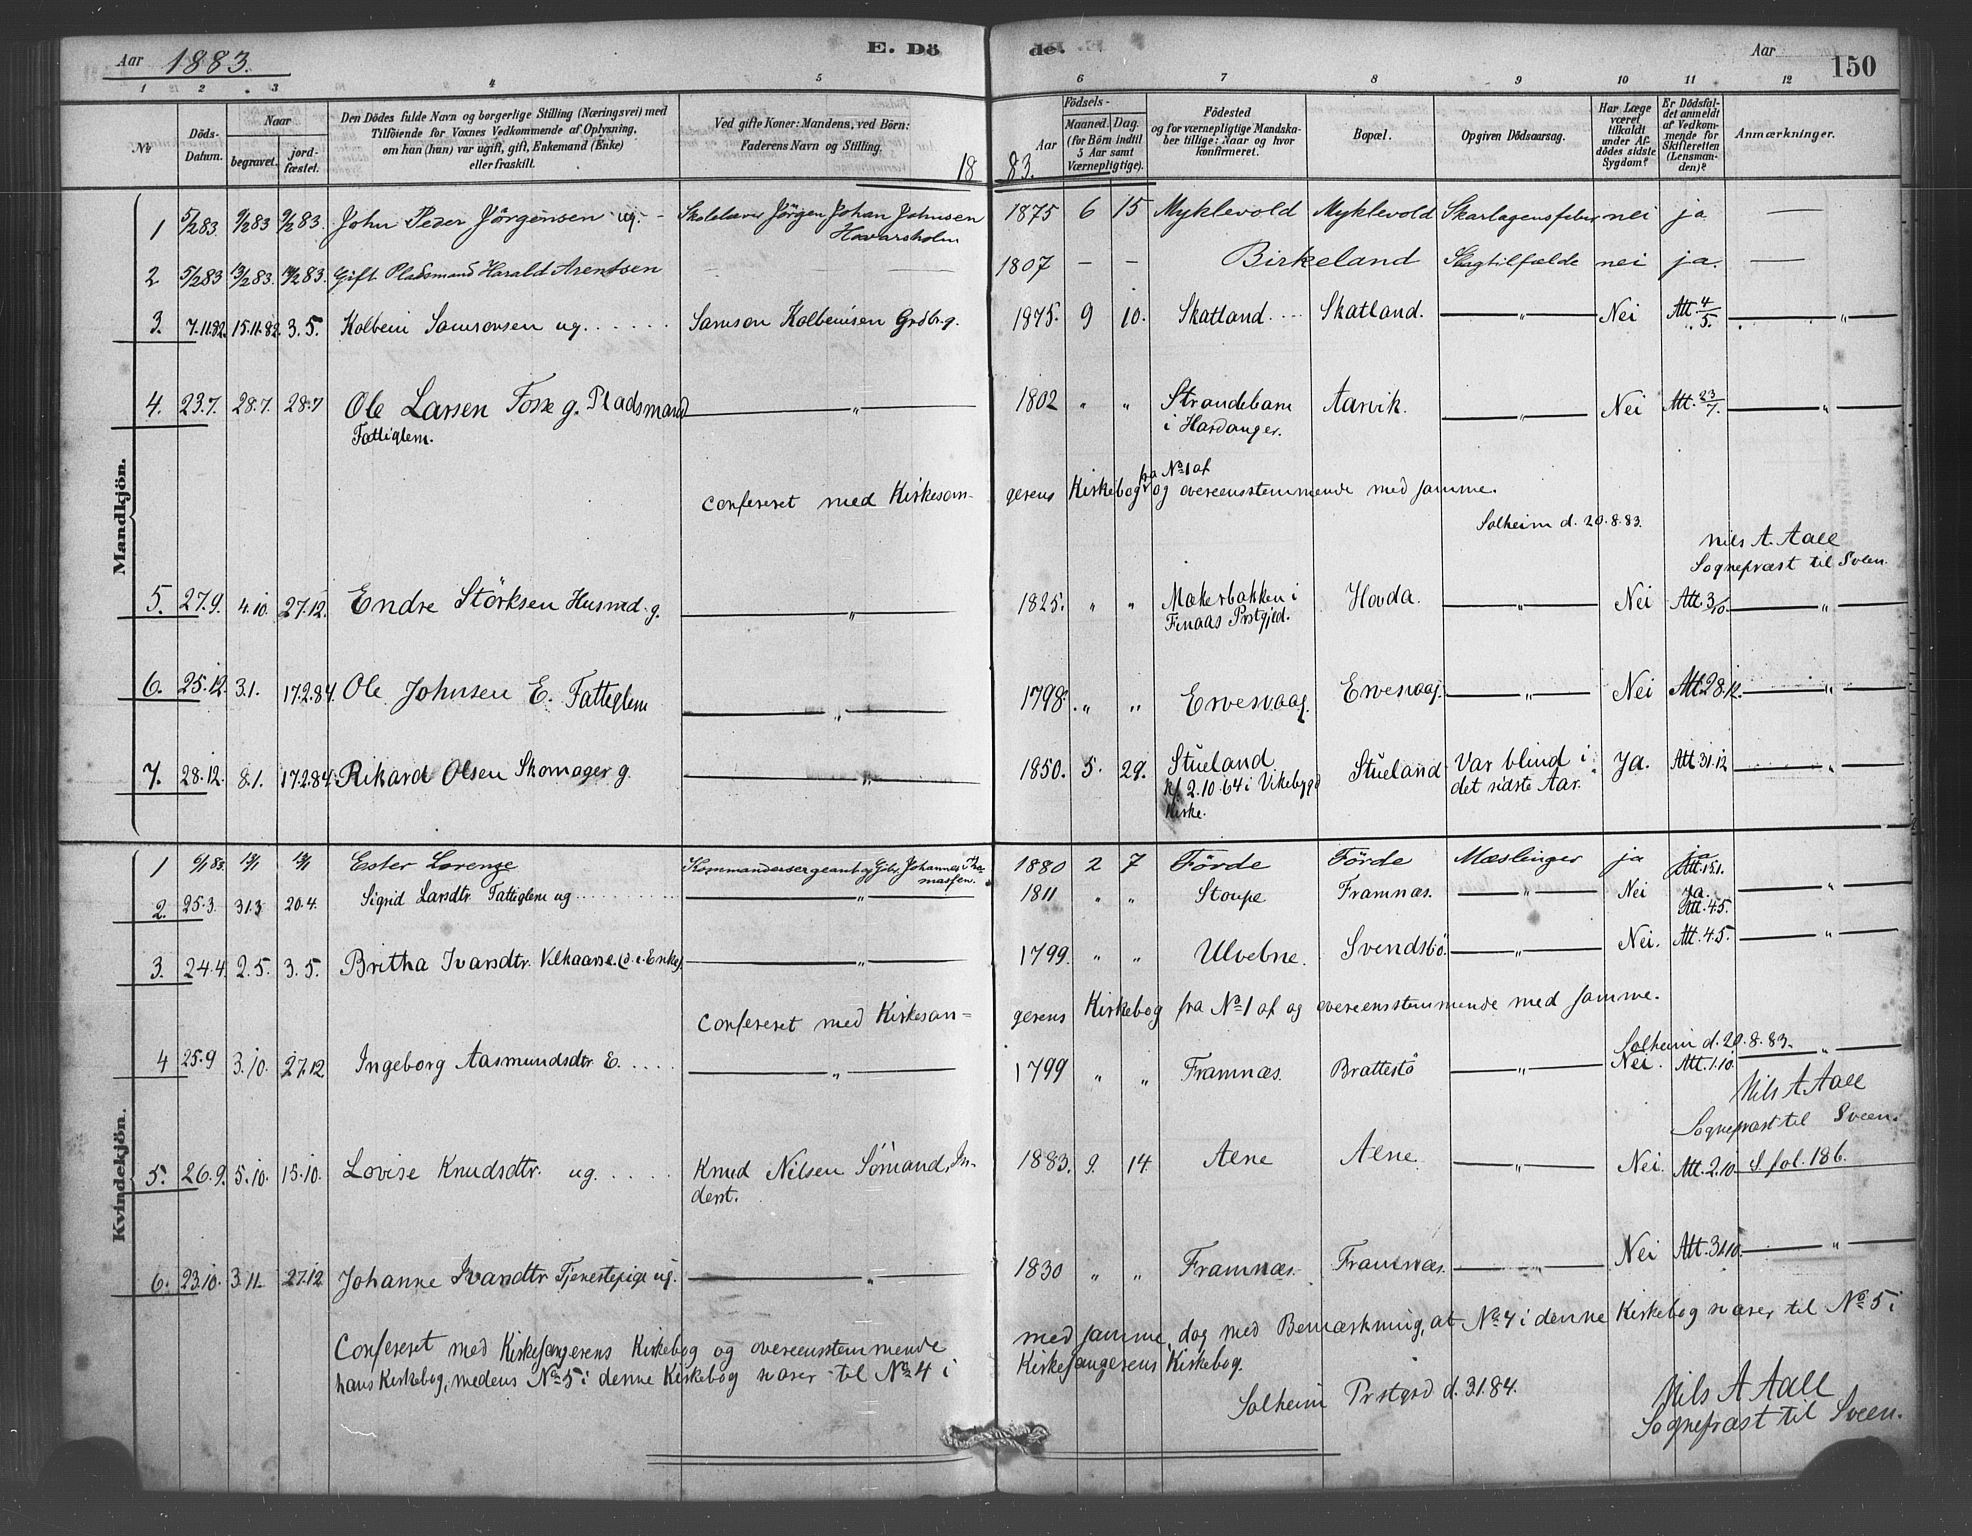 Aar 1883.
E. Dö de.
Aar 150
1 2 3 4 5 6 7 8 9 10 11 12
No
Döds-Datum.
Naar
begravet.
jord-fæstet.
Den Dödes fulde Navn og borgerlige Stilling (Næringsvei) med
Tilföiende for Voxnes Vedkommende af Oplysning,
om han (hun) var ugift, gift, Enkemand (Enke)
eller fraskilt.
Ved gifte Koner: Mandens, ved Börn:
Faderens Navn og Stilling.
Födsels-
Aar
Maaned. Dag.
(for Börn indtil
5 Aar samt
Værnepligtige).
Födested
og for værnepligtige Mandska-
ber tillige: Naar og hvor
konfirmeret.
Bopæl.
Opgiven Dödsaarsag.
Har Læge
været
tilkaldt
under Af-
dödes sidste
Sygdom?
Er Dödsfal-
det anmeldt
af Vedkom-
mende for
Skifteretten
(Lensman-
den)?
Anmærkninger.
1883.
Mandkjön.
1 5/2 83 9/2 83 9/2 83. John Peder Jörgensen ug. Skolelærer Jörgen Johan Johnsen 1875 6 15 Myklevold Myklevold Skarlagensfeber nei ja —
Hovarsholm
2 5/2 83 13/2 83. 13/2 83. Gift Pladsmand Harald Arentsen — — 1807 — — Birkeland Slagtilfælde nei ja. —
3. 7.11.82. 15.11.82. 3.5. Kolbein Samsonsen ug. Samson Kolbeinsen Grdbr. g. 1875. 9 10. Skatland. Skatland. — „ — Nei Att. 4/5. „
4. 23.7. 28.7. 28.7 Ole Larsen Fosse g. Pladsmand „ 1802 „ „ Strandebarm Aarvik. „ Nei Att. 23/7. „
Fattiglem.
i Hardanger.
Confereret med Kirkesan- gerens Kirkebog fra No 1 af og overeensstemmende med samme.
Solheim d. 20.8.83.
Nils A. Aall
Sognepræst til Sveen.
5. 27.9. 4.10. 27.12. Endre Störksen Husmd. g. „ 1825. „ „ Makerbakken i Hovda. „ Nei Att. 3/10. „
Finaas Prstgjld.
6. 25.12. 3.1. 17.2.84. Ole Johnsen E. Fattiglem „ 1798. „ „ Ervesvaag. Ervesvaag. „ Nei Att. 28.12. „
7. 28.12. 8.1. 17.2.84. Rikard Olsen Skomager g. „ 1850. 5. 29. Stueland Stueland Var blind i Ja. Att. 31.12 „
kf. 2.10.64 i Vikebygd det sidste Aar.
Kirke.
Kvindekjön.
1 6/1 83. 13/1 13/1 Ester Lorenze Kommandersergeant og Gbr. Johannes Tho- 1880 2 7 Förde Förde Mæslinger ja ja
massen. Att. 15.1.
2. 25.3. 31.3 20.4. Sigrid Larsdtr. Fattiglem ug „ 1811 „ „ Stoupe Framnæs. „ Nei Ja. „
Att. 4.5.
3. 24.4. 2.5. 3.5. Britha Ivarsdtr. E. Enke. „ 1799. „ „ Ulvebne. Svendsbö. „ Nei. Att. 4.5. „
Confereret med Kirkesan- gerens Kirkebog fra No 1 af og overeensstemmende med samme.
Solheim d. 20.8.83.
4 25.9 3.10. 27.12 Ingeborg Aasmundsdtr. E. „ 1799 „ „ Framnæs. Brattestö „ Nei. Att. 1.10. „
Nils A. Aall
Sognepræst til Sveen.
5. 26.9. 5.10. 15.10. Lovise Knudsdtr. ug. Knud Nilsen Sömand, In- 1883. 9. 14. Alne Alne. „ Nei. Att. 2.10. S. fol. 186.
derst.
6. 23.10. 3.11. 27.12 Johanne Ivarsdtr. Tjenestepige ug. „ 1830 „ „ Framnæs. Framnæs. „ Nei Att. 31.10. „
Confereret med Kirkesangerens Kirkebog og overeensstemmende med samme, dog med Bemærkning, at No 4 i denne Kirkebog svarer til No 5 i
hans Kirkebog, medens No 5 i denne Kirkebog svarer til No 4 i Kirkesangerens Kirkebog.
Solheim Prstgrd d. 3.1.84.
Nils A. Aall
Sognepræst til Sveen.